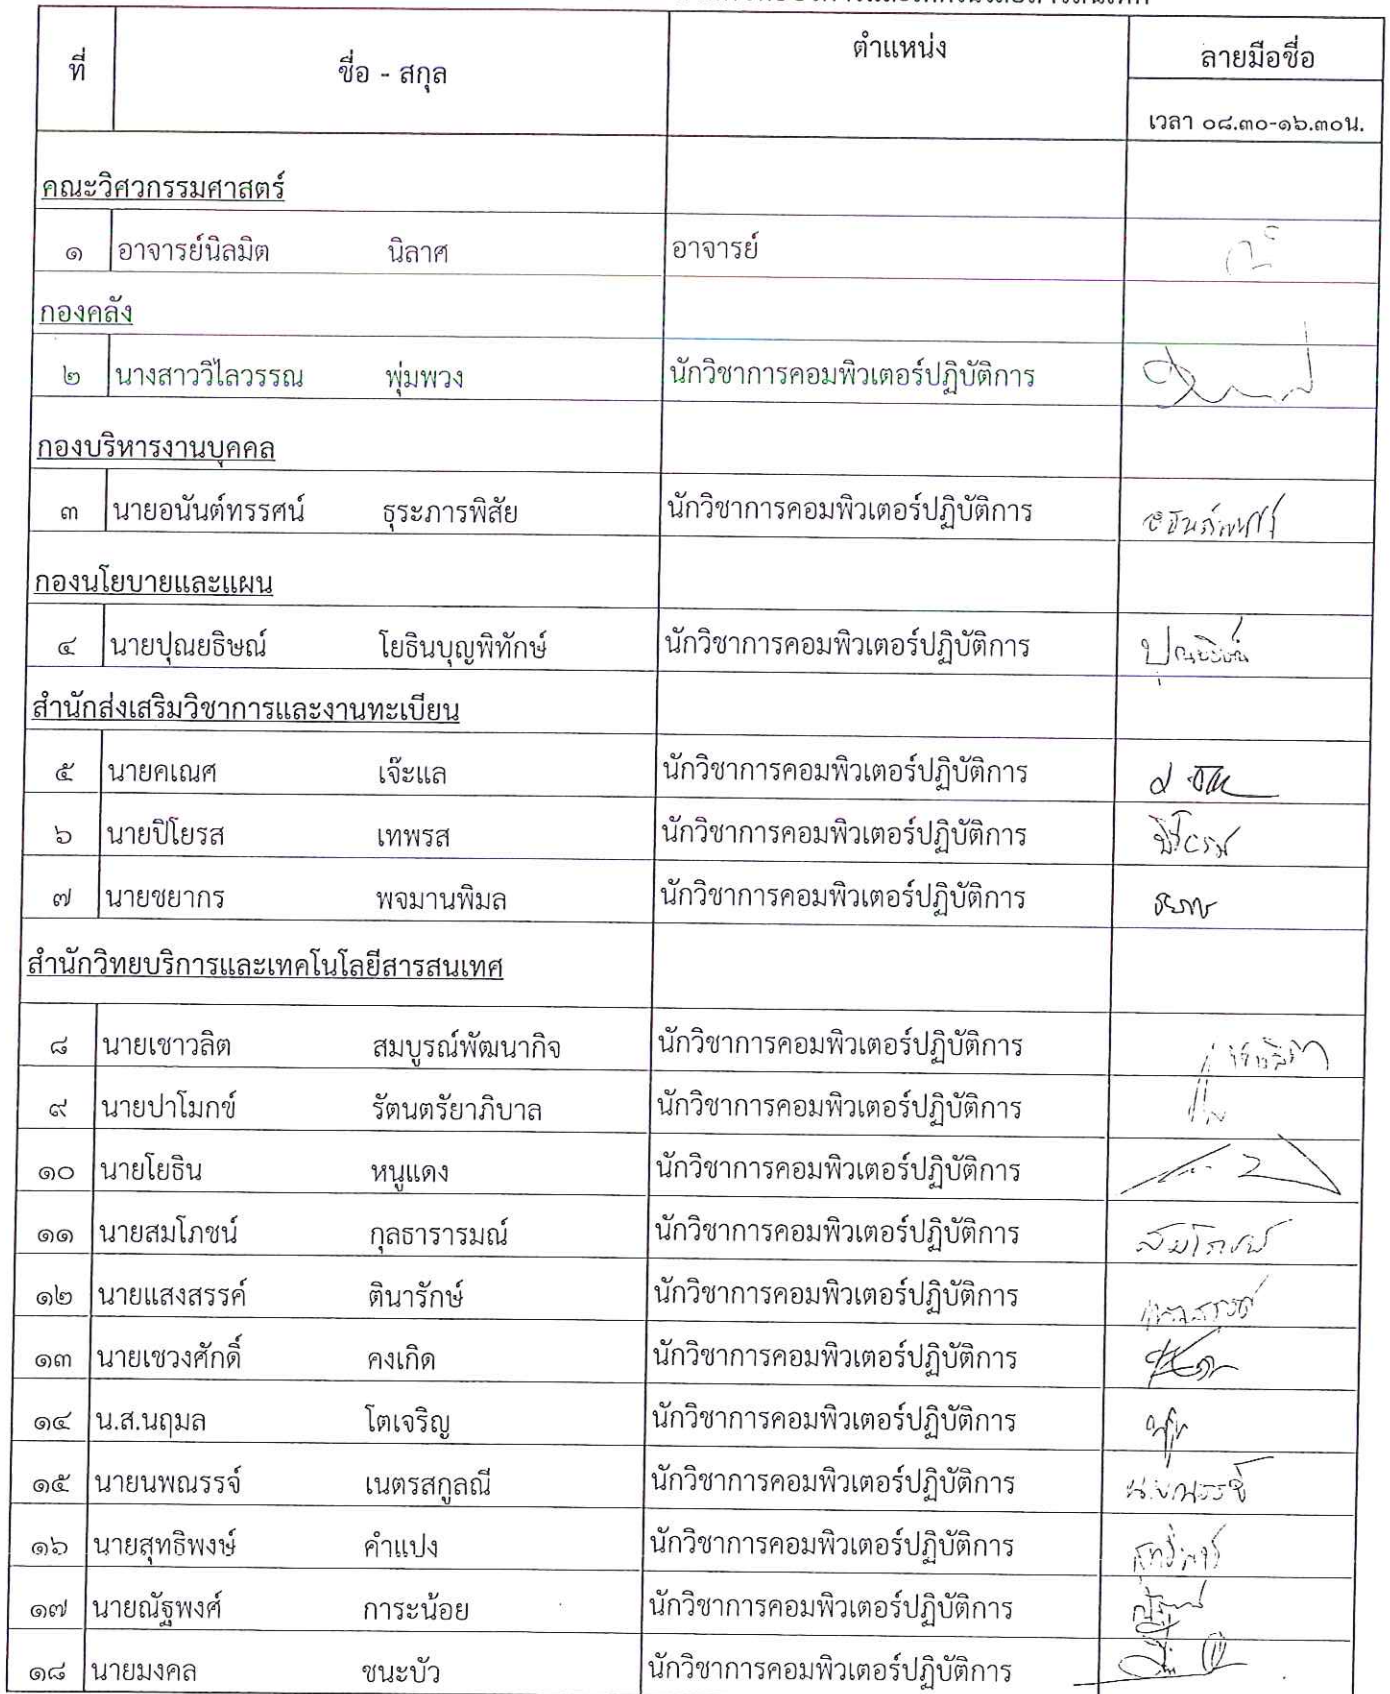 ที่ ชื่อ - สกุล ตำแหน่ง ลายมือชื่อ
เวลา ๐๘.๓๐-๑๖.๓๐น.
คณะวิศวกรรมศาสตร์
๑ อาจารย์นิลมิต นิลาศ อาจารย์
กองคลัง
๒ นางสาววิไลวรรณ พุ่มพวง นักวิชาการคอมพิวเตอร์ปฏิบัติการ
กองบริหารงานบุคคล
๓ นายอนันต์ทรรศน์ ธุระภารพิสัย นักวิชาการคอมพิวเตอร์ปฏิบัติการ
กองนโยบายและแผน
๔ นายปุณยธิษณ์ โยธินบุญพิทักษ์ นักวิชาการคอมพิวเตอร์ปฏิบัติการ
สำนักส่งเสริมวิชาการและงานทะเบียน
๕ นายคเณศ เจ๊ะแล นักวิชาการคอมพิวเตอร์ปฏิบัติการ
๖ นายปิโยรส เทพรส นักวิชาการคอมพิวเตอร์ปฏิบัติการ ปิโยรส
๗ นายชยากร พจมานพิมล นักวิชาการคอมพิวเตอร์ปฏิบัติการ
สำนักวิทยบริการและเทคโนโลยีสารสนเทศ
๘ นายเชาวลิต สมบูรณ์พัฒนากิจ นักวิชาการคอมพิวเตอร์ปฏิบัติการ
๙ นายปาโมกข์ รัตนตรัยาภิบาล นักวิชาการคอมพิวเตอร์ปฏิบัติการ
๑๐ นายโยธิน หนูแดง นักวิชาการคอมพิวเตอร์ปฏิบัติการ
๑๑ นายสมโภชน์ กุลธารารมณ์ นักวิชาการคอมพิวเตอร์ปฏิบัติการ สมโภชน์
๑๒ นายแสงสรรค์ ตินารักษ์ นักวิชาการคอมพิวเตอร์ปฏิบัติการ แสงสรรค์
๑๓ นายเชวงศักดิ์ คงเกิด นักวิชาการคอมพิวเตอร์ปฏิบัติการ
๑๔ น.ส.นฤมล โตเจริญ นักวิชาการคอมพิวเตอร์ปฏิบัติการ
๑๕ นายนพณรรจ์ เนตรสกูลณี นักวิชาการคอมพิวเตอร์ปฏิบัติการ นพณรรจ์
๑๖ นายสุทธิพงษ์ คำแปง นักวิชาการคอมพิวเตอร์ปฏิบัติการ
๑๗ นายณัฐพงศ์ การะน้อย นักวิชาการคอมพิวเตอร์ปฏิบัติการ
๑๘ นายมงคล ชนะบัว นักวิชาการคอมพิวเตอร์ปฏิบัติการ